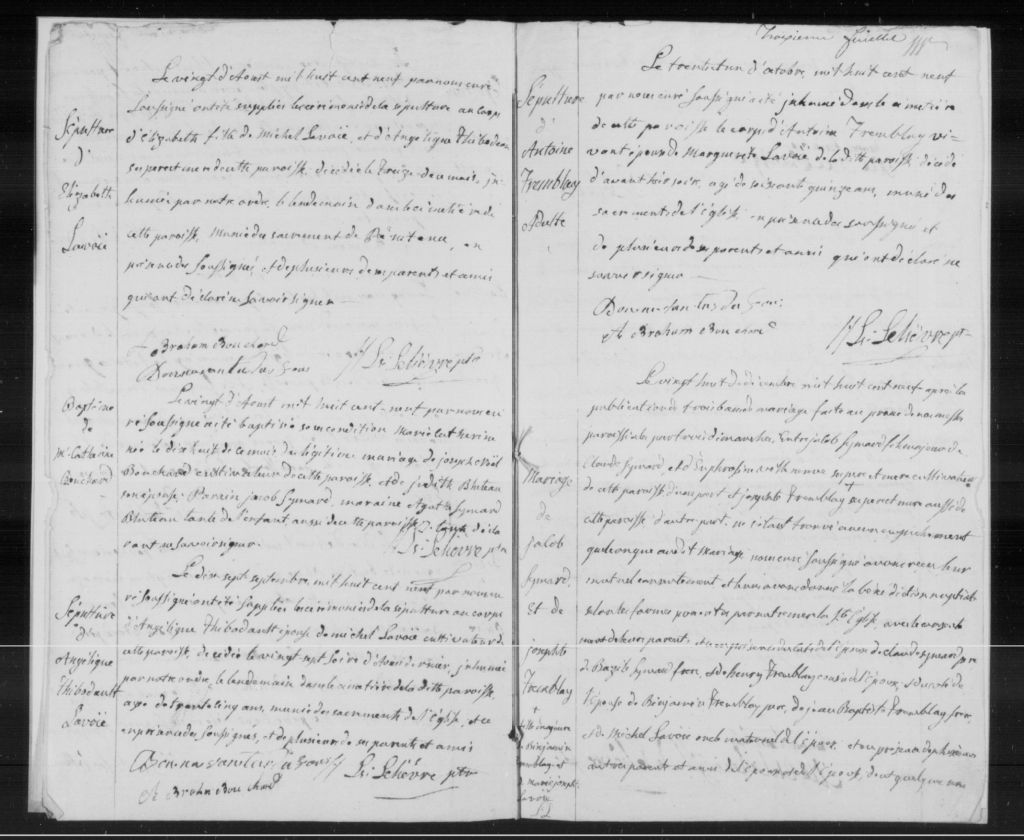 Sépulture
d'
Elizabeth
Lavoie
Le vingt d'Aoust mil huit cent neuf par nous curé
Soussigné ont été suppliés les cérémonies de la sépulture au corps
d'Elizabeth fille de Michel Lavoie, et d'Angelique Thibodeau
ses parents de cette paroisse, décédée le treize de ce mois, in-
humée par notre ordre, le lendemain dans le cimetière de
cette paroisse, munie du sacrement de Pénitence, en
présence des Soussignés, et de plusieurs de ses parents et amis
qui ont déclaré ne savoir signer
Abraham Bouchard
Lr. Leliévre ptre
Baptême
de
Me Catherine
Bouchard
Le vingt d'Aoust mil huit cent neuf par nous cu-
ré Soussigné a été baptisée sous condition Marie Catherine
née le dix huit de ce mois du légitime mariage de joseph Noël
Bouchard cultivateur de cette paroisse, et de judith Bluteau
son épouse. Parain jacob Symard, maraine Agathe Symard
Bluteau tante de l'enfant aussi de cette paroisse
rant ne savoir signer.
Lr. Leliévre ptre
Sépulture
de
Angelique
Thibodault
Lavoie
Le dix sept septembre mil huit cent neuf par nous cu-
ré Soussigné ont été suppliés les cérémonies de la sépulture au corps
d'Angelique Thibodault épouse de michel Lavoie cultivateur de
cette paroisse, décédée le vingt sept d'Aoust dernier, inhumée
par notre ordre, le lendemain dans le cimetière de la ditte paroisse,
agée de trente cinq ans, munie des sacrements de l'Eglise, et ce
en présence des Soussignés, et de plusieurs de ses parents et amis
Lr. Leliévre ptre
Abraham Bouchard
Troisieme feuillet
Sépulture
d'
Antoine
Tremblay
Adulte
Le trente un d'octobre, mil huit cent neuf
par nous curé soussigné a été inhumé dans le cimetière
de cette paroisse le corps d'Antoine Tremblay vi-
vant époux de Marguerite Lavoie de la ditte paroisse décédé
d'avant hier soir, agé de soixante quinze ans, muni des
sacrements de l'Eglise en présence des soussignés et
de plusieurs de ses parents et amis qui ont déclaré ne
savoir signer
Abraham Bouchard
Lr. Leliévre ptre
Mariage
de
jacob
Symard,
Et de
josephte
Tremblay
+ fille mineure
de Benjamin
Tremblay et
de marie josephte
Lavoie
Le vingt huit de décembre mil huit cent neuf après la
publication de trois bans de mariage faite au prone de nos messes
paroissiales par trois dimanches, Entre jacob Symard fils majeur de
Claude Symard et d'Euphrosine ses pere et mere cultivateurs
de cette paroisse d'une part et josephte Tremblay + ses pere et mere aussi de
cette paroisse d'autre part, ne s'étant trouvé aucun empêchement
quelconque au dit Mariage nous curé soussigné avons reçu leur
mutuel consentement et leur avons donné la bénédiction nuptiale
selon les formes prescrites par notre mere la Ste Eglise, avec le consente-
ment de leurs parents, et en présence du coté de l'époux de claude symard pere
de Bazile Symard frere, et de henry Tremblay cousin de l'époux, et du coté de
l'épouse de Benjamin Tremblay pere, de jean Baptiste Tremblay frere,
et de Michel Lavoie oncle maternel de l'épouse, et en présence de plusieurs
autres parents et amis de l'époux et de l'épouse, dont quelques uns